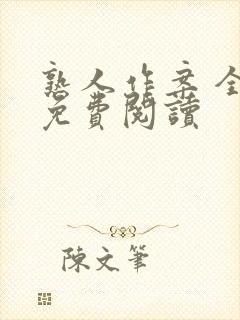 熟人作案全
免費閱讀
陳文筆